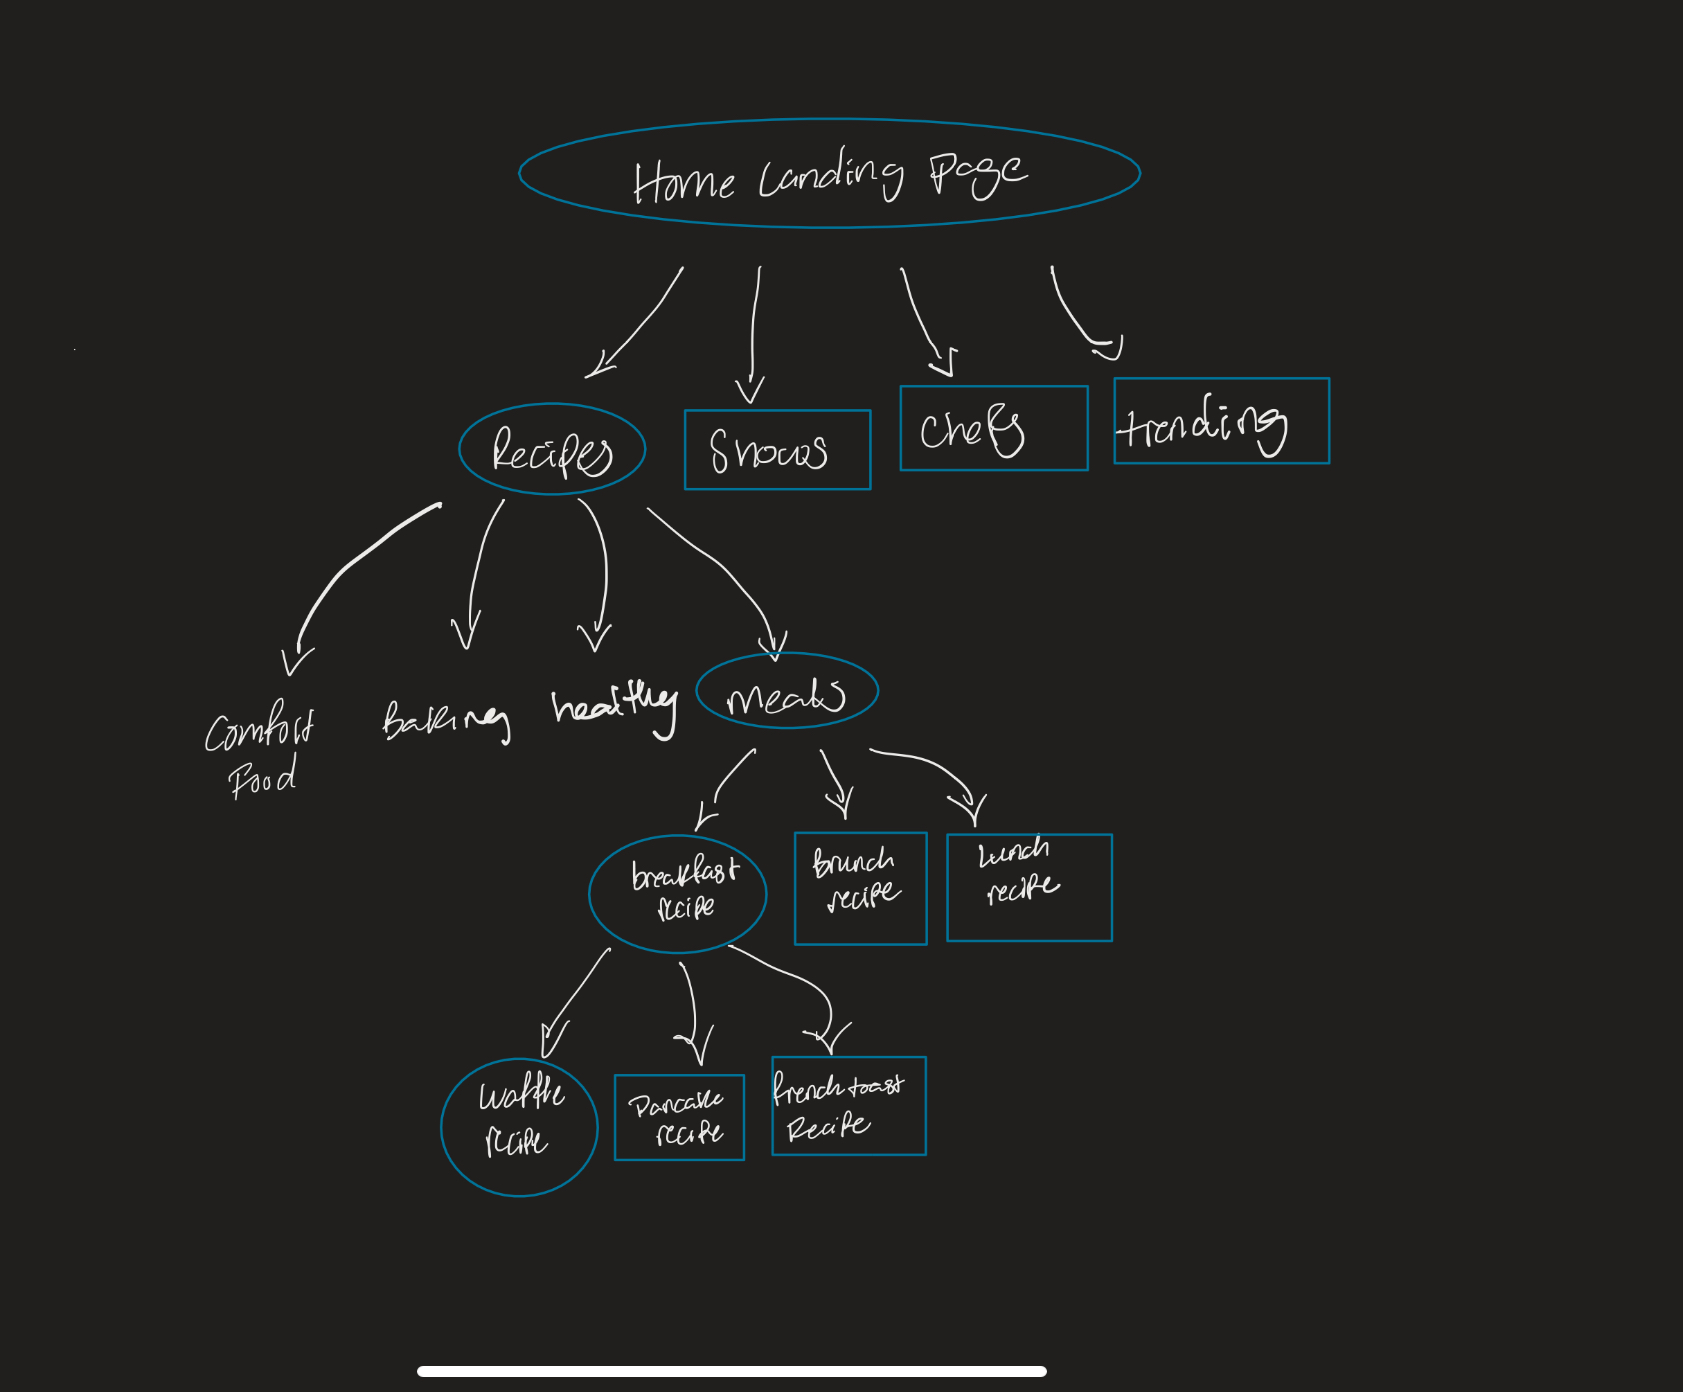 Home Landing Page
Recipes
Shows
Chefs
trending
Comfort
Food
Baking
healthy
meals
breakfast
recipe
Brunch
recipe
Lunch
recipe
Waffle
recipe
Pancake
recipe
french toast
Recipe